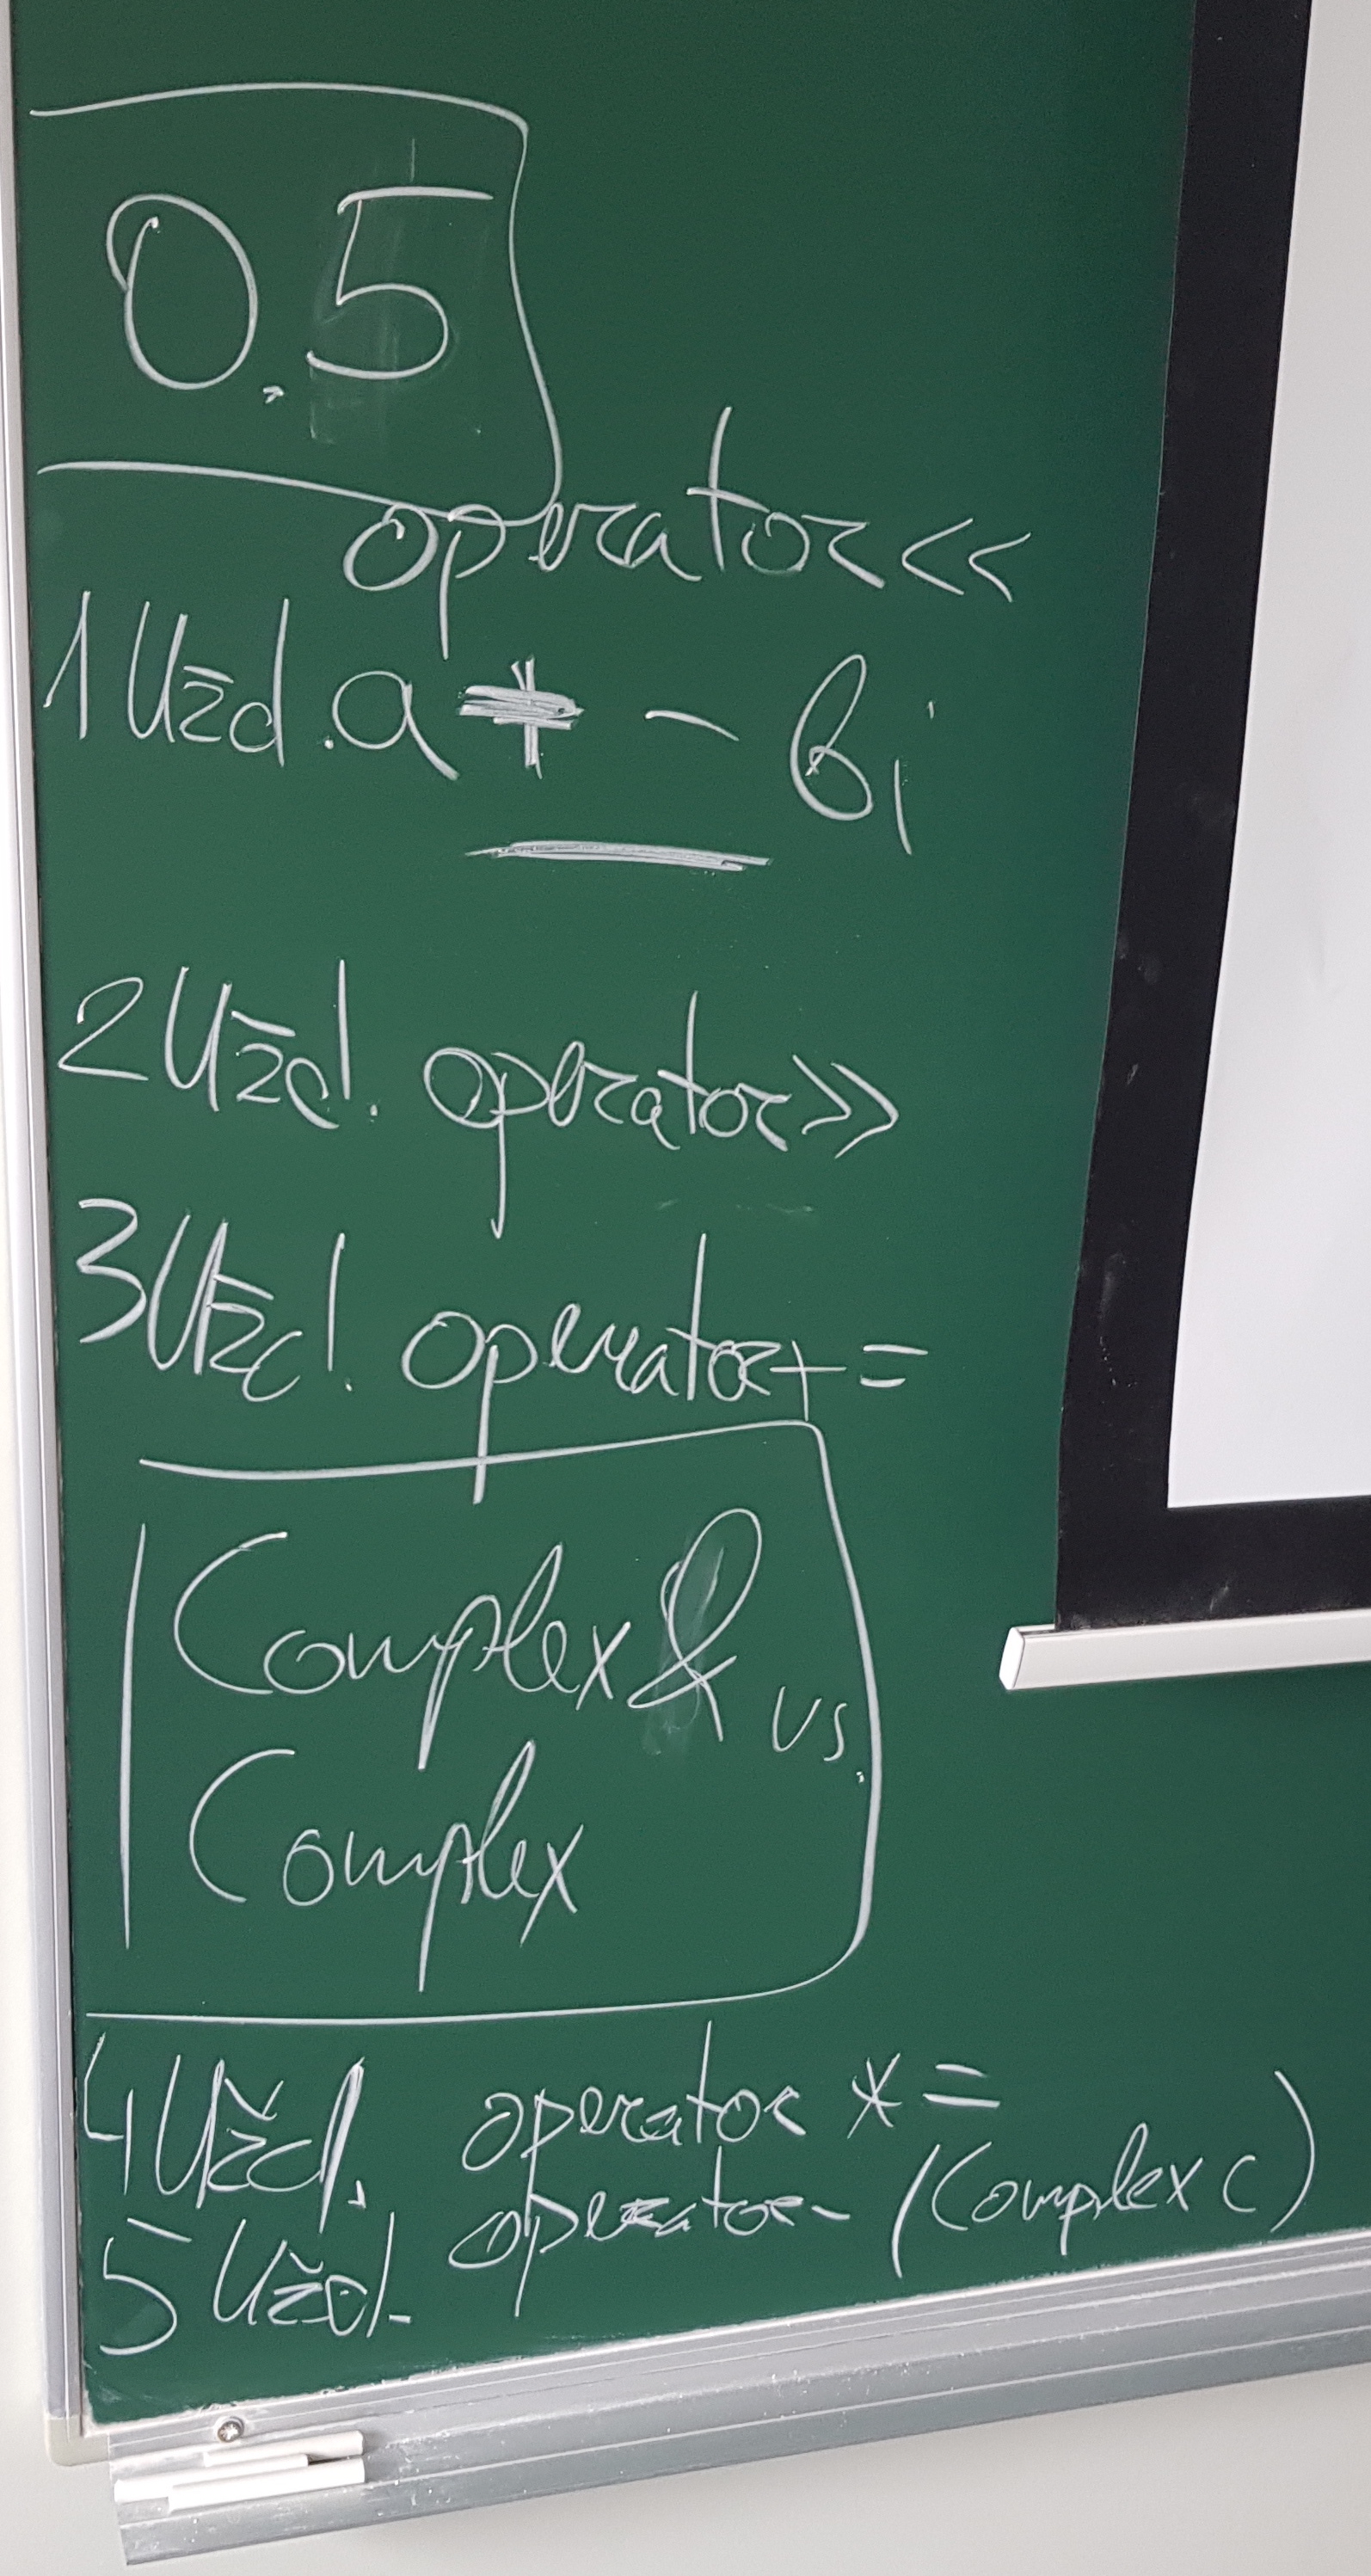 0.5
operator<<
1 Užd. a - bi
2 Užd. operator>>
3 Užd. operator+=
Complex& vs.
Complex
4 Užd. operator *=
5 Užd. operator- (Complex c)